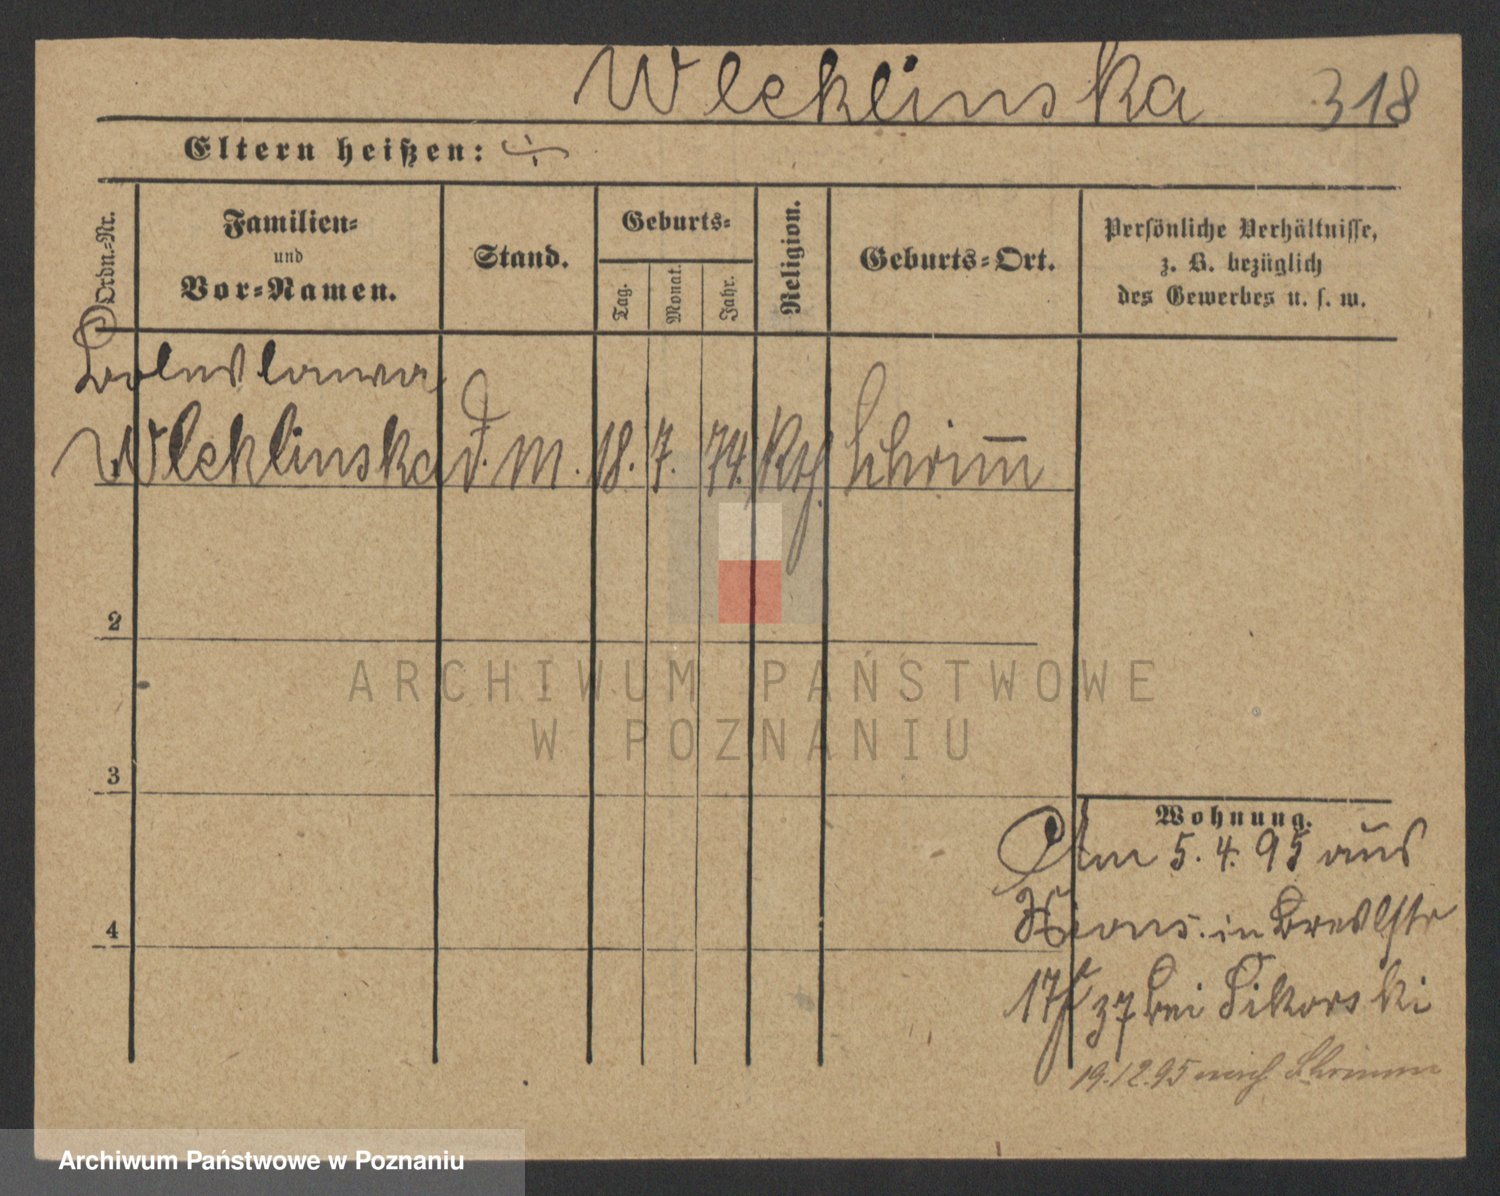 Wleklinska 318
Eltern heißen: ÷
Ordn.-Nr.
Familien-
und
Vor-Namen.
Stand.
Geburts-
Tag.
Monat.
Jahr.
Religion.
Geburts-Ort.
Persönliche Verhältnisse,
z. B. bezüglich
des Gewerbes u. s. w.
Boleslawa
Wleklinska d. m. 18. 7. 74. kth Schrim̅
2
3
4
Wohnung.
Am 5. 4. 95 aus
Xions. in Breslstr
17/37 bei Sikorski
19.12.95 nach Schrimm
ARCHIWUM PAŃSTWOWE
W POZNANIU
Archiwum Państwowe w Poznaniu